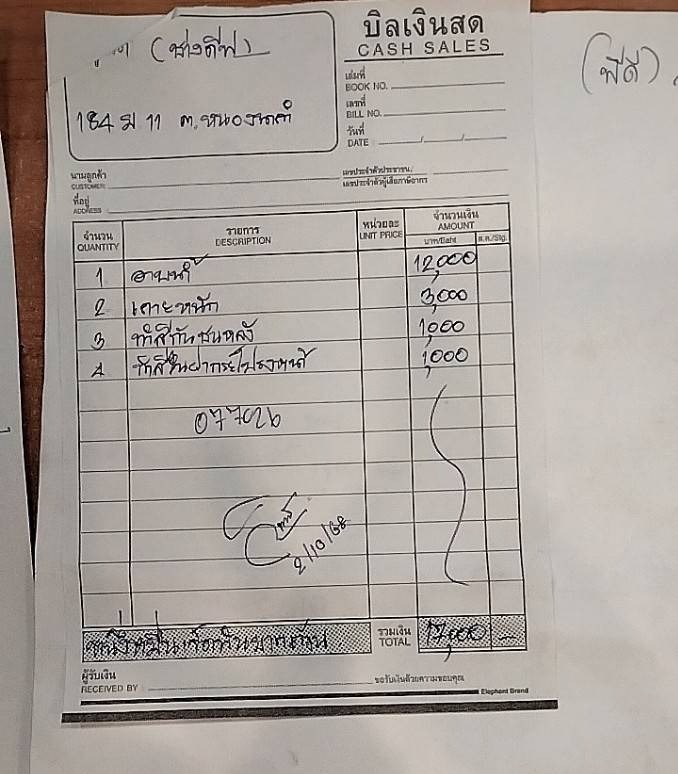 บิลเงินสด
CASH SALES
(ช่างดีฟ)
(พีดี)
เล่มที่
BOOK NO.
เลขที่
BILL NO.
184 ม 11 ต.
วันที่
DATE / /
นามลูกค้า
CUSTOMER
เลขประจำตัวประชาชน/
เลขประจำตัวผู้เสียภาษีอากร
ที่อยู่
ADDRESS
จำนวน รายการ หน่วยละ จำนวนเงิน
QUANTITY DESCRIPTION UNIT PRICE AMOUNT
บาท/Baht ส.ต./Stg.
1 อาบน้ำ 12,000
2 เคาะหนัก 3,000
3 ทำสีกันชนหลัง 1,000
4 ทำสีฝากระโปรงหน้า 1,000
07726
2/10/68
หนึ่งหมื่นเจ็ดพันบาทถ้วน รวมเงิน 17,000 -
TOTAL
ผู้รับเงิน
RECEIVED BY
ขอรับเงินด้วยความขอบคุณ
Elephant Brand